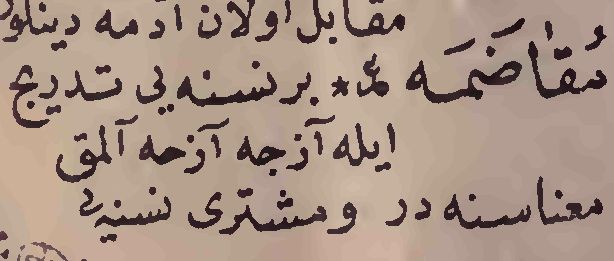 مقابل اولان آدمه دینلور
مُقاضَمَه ع٭ بر نسنه یی تدریج
ایله آزجه آزجه آلمق
معناسنه در و مشتری نسنه یی